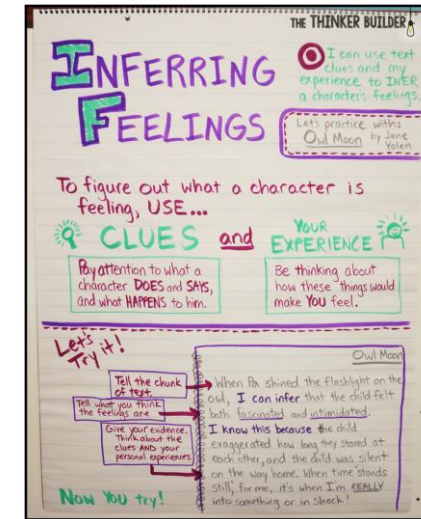 THE THINKER BUILDER
INFERRING
FEELINGS
I can use text
clues and my
experience to INER
a character's feelings.
Let's practice with:
Owl Moon by Jane
Yolen
To figure out what a character is
feeling, USE...
CLUES and YOUR
EXPERIENCE
Pay attention to what a
character DOES and SAYS,
and what HAPPENS to him.
Be thinking about
how these things would
make YOU feel.
Let's
Try it!
Tell the chunk
of text.
Tell what you think
the feelings are
Give your evidence.
Think about the
clues AND your
personal experiences
Now You try!
Owl Moon
When Pa shined the flashlight on the
owl, I can infer that the child felt
both fascinated and intimidated.
I know this because the child
exaggerated how long they stared at
each other, and the child was silent
on the way home. When time stands
still, for me, it's when I'm REALLY
into something or in shock!